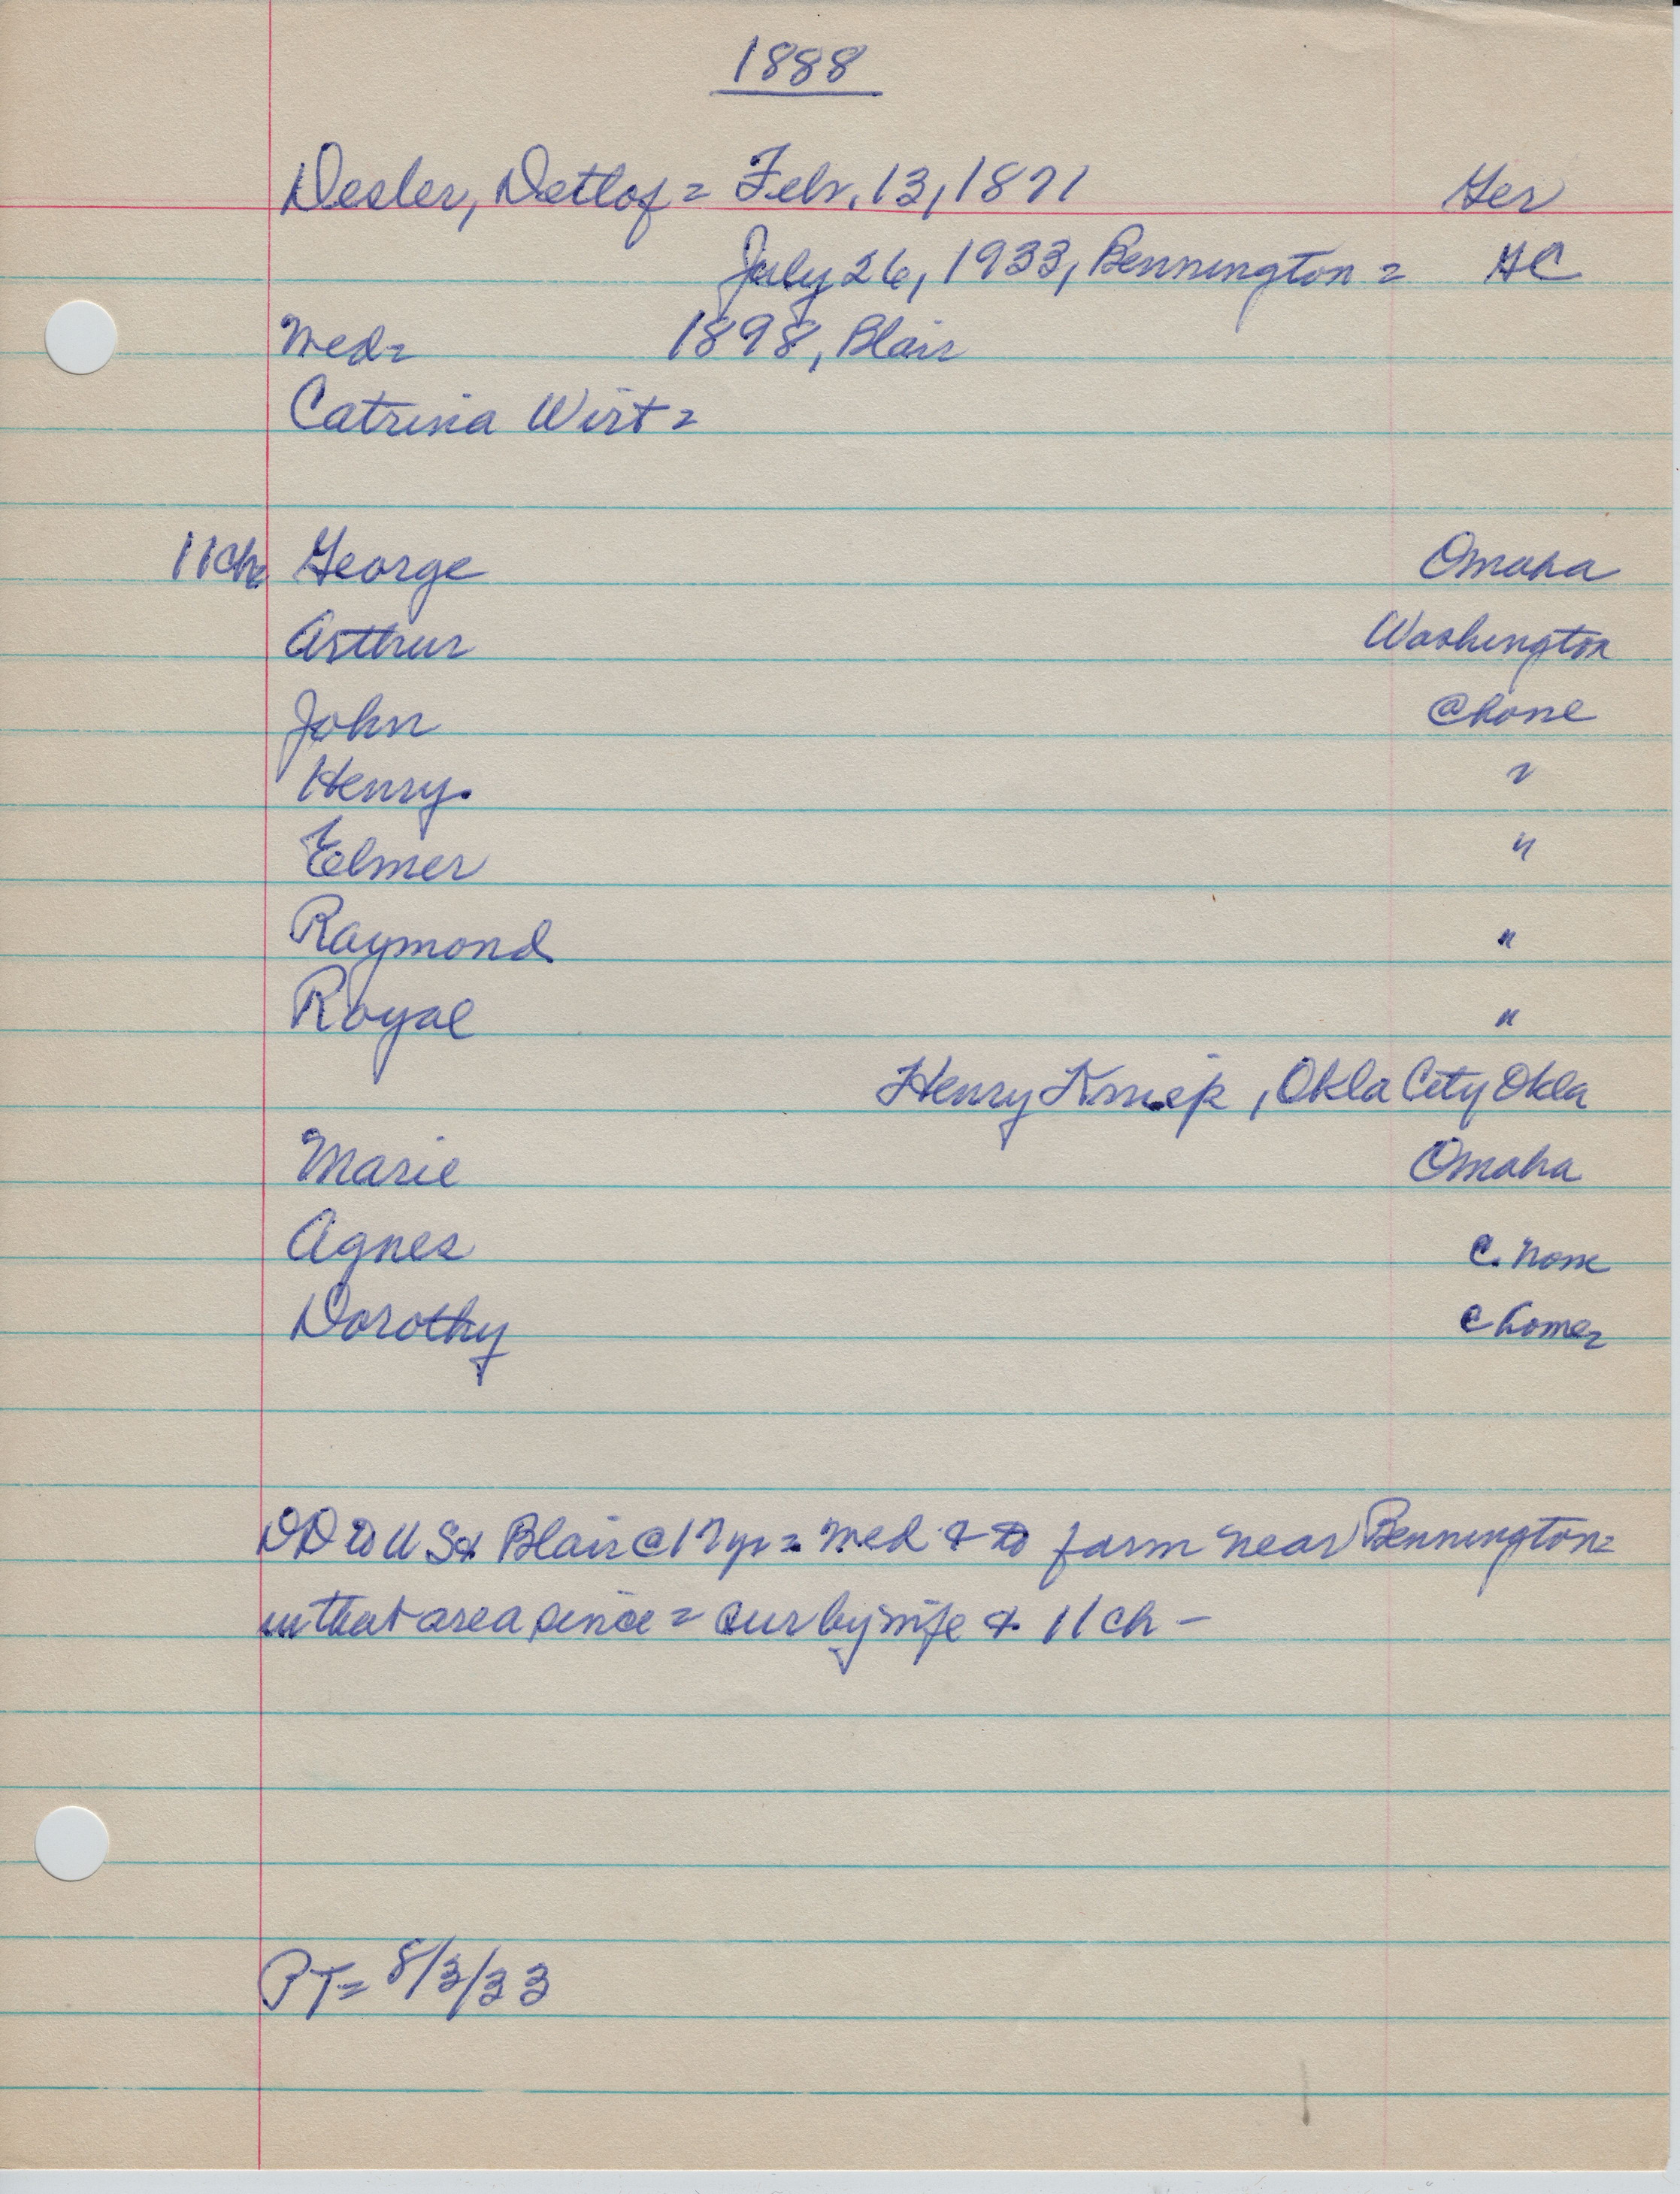 1888
Desler, Detlof = Febr. 13, 1871 Ger
July 26, 1933, Bennington = HC
Med= 1898, Blair
Catrina Wirt =
11ch= George Omaha
Arthur Washington
John @home
Henry. "
Elmer "
Raymond "
Royal "
Henry , Okla City Okla
Marie Omaha
Agnes @ home
Dorothy @ home=
DD to US & Blair @ 17 yr = Med & to farm near Bennington=
in that area since = sur by wife & 11 ch -
PT= 8/3/33